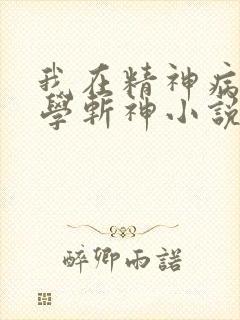 我在精神病
學斬神小說
醉卿雨諾